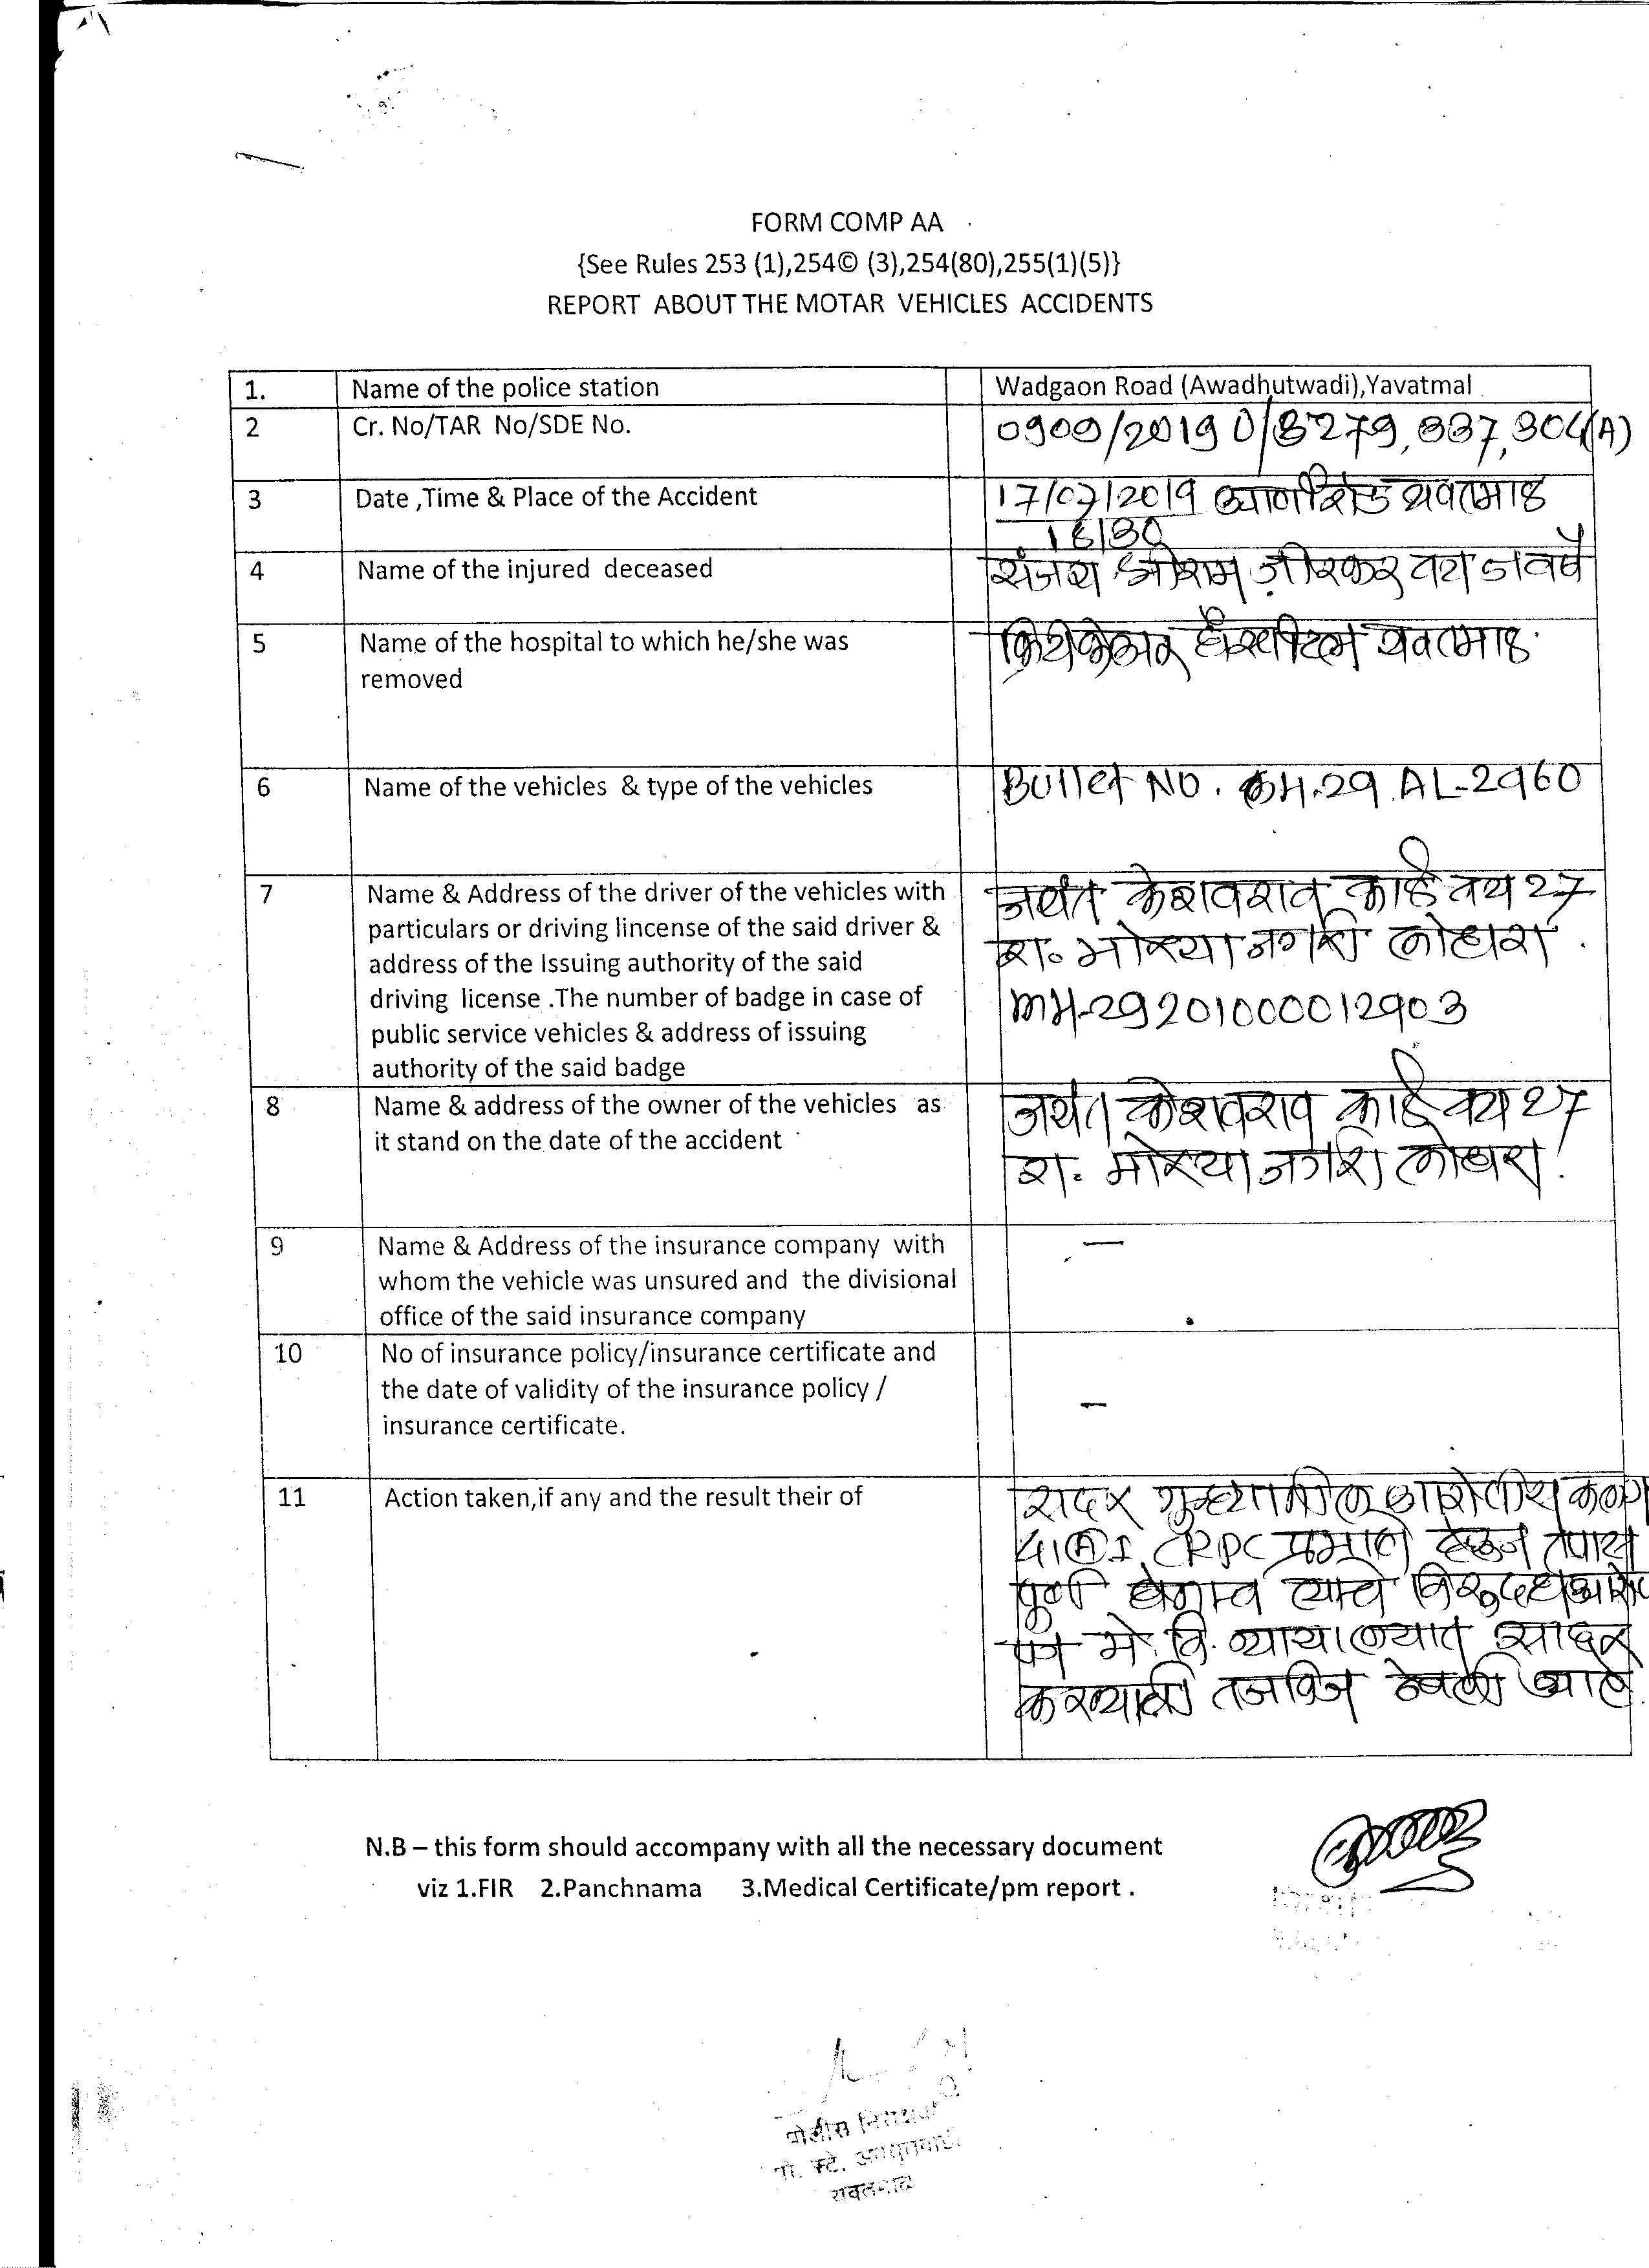 FORM COMP AA
{See Rules 253 (1),254© (3),254(80),255(1)(5)}
REPORT ABOUT THE MOTAR VEHICLES ACCIDENTS
1. Name of the police station Wadgaon Road (Awadhutwadi),Yavatmal
2 Cr. No/TAR No/SDE No. 0909/2019 279, 337, 304(A)
3 Date ,Time & Place of the Accident 17/07/2019 यवतमाळ
4 Name of the injured deceased संजय श्रीराम
5 Name of the hospital to which he/she was
removed
हॉस्पीटल यवतमाळ
6 Name of the vehicles & type of the vehicles Bullet NO. MH-29.AL-2960
7 Name & Address of the driver of the vehicles with
particulars or driving lincense of the said driver &
address of the Issuing authority of the said
driving license .The number of badge in case of
public service vehicles & address of issuing
authority of the said badge
जयंत केशवराव काळे वय 27
रा. मोरया नगरी लोहारा.
MH-29201000012903
8 Name & address of the owner of the vehicles as
it stand on the date of the accident
जयंत केशवराव काळे वय 27
रा. मोरया नगरी लोहारा.
9 Name & Address of the insurance company with
whom the vehicle was unsured and the divisional
office of the said insurance company
—
10 No of insurance policy/insurance certificate and
the date of validity of the insurance policy /
insurance certificate.
—
11 Action taken,if any and the result their of
सदर गुन्ह्यातील आरोपीस कलम
41(A)1 CRPC प्रमाणे तपास
पुर्ण त्याचे विरुद्ध
पत्र मे. वि. न्यायालयात सादर
करण्याची तजविज ठेवली आहे.
N.B – this form should accompany with all the necessary document
viz 1.FIR 2.Panchnama 3.Medical Certificate/pm report .
पोलीस निरीक्षक
पो. स्टे. अवधुतवाडी
यवतमाळ